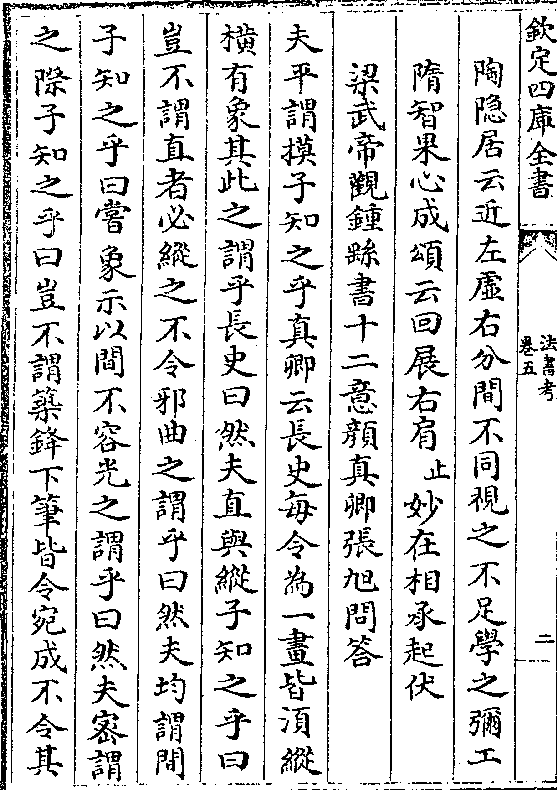 欽定四庫全書
法書考
卷五
二
陶隠居云近左虛右分間不同視之不足學之彌工
隋智果心成頌云回展右肩止妙在相承起伏
梁武帝觀鍾繇書十二意顔真卿張旭問答
夫平謂摸子知之乎真卿云長史每令為一畫皆須縱
橫有象其此之謂乎長史曰然夫直與縱子知之乎曰
豈不謂直者必縱之不令邪曲之謂乎曰然夫均謂間
子知之乎曰嘗象示以間不容光之謂乎曰然夫宻謂
之際子知之乎曰豈不謂築鋒下筆皆令宛成不令其